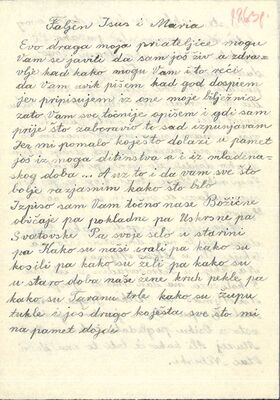 Faljen Isus i Maria
Evo draga moja priateljice mogu
Vam se javiti da sam još živ a zdra-
vlje kad kako mogu Vam i to reći
da Vam uvik pišem kad god dospiem
jer pripisujem iz one moje biljžnice
zato Vam sve točnije opišem i gdi sam
prije što zaboravio te sad izpunjavam
Jer mi pomalo koješto dolazi u pamet
još iz moga ditinstva a i iz mladena-
skog doba ... A uz to i da vam sve što
bolje razjasnim kako što bilo
Izpiso sam Vam točno naše Božićne
običaje pa pokladne pa Uskrsne pa
Svetovske Pa svoje selo u starini
pa Kako su naši orali pa kako su
kosili pa kako su želi pa kako su
u staro doba naše žene kruh pekle pa
kako su Taranu trle kako su župu
tukle i još drugo koješta sve što mi
na pamet dojde